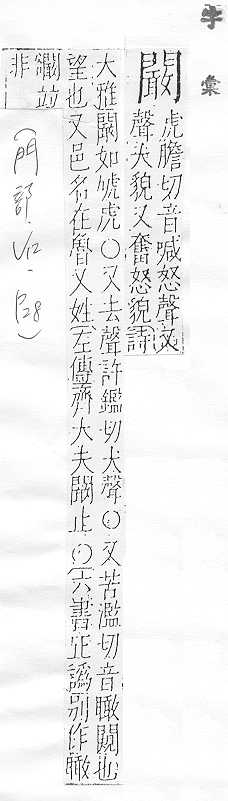 字彙
闞
虎膽切音喊怒聲又
聲大貌又奮怒貌〔詩
大雅闞如虓虎○又去聲許鑑切犬聲○又苦濫切音瞰闚也
望也又邑名在魯又姓〔左傳齊大夫闞止○〔六書正譌別作瞰
矙並
非
(門部. P28)